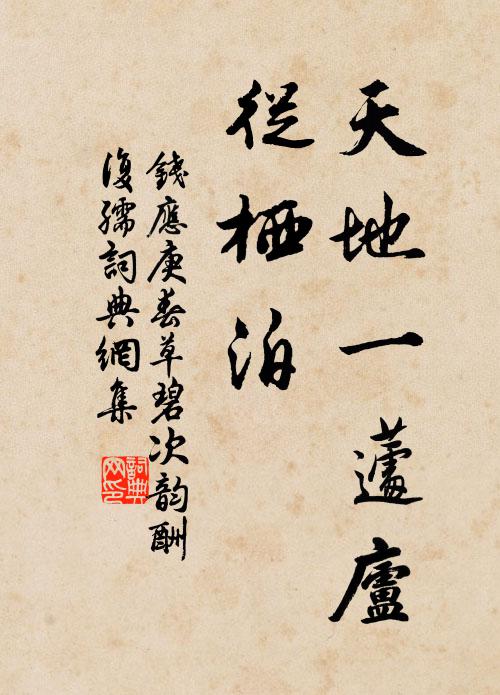 天地一蘧廬
從栖泊
錢應庚春草碧次韵酬
復孺詞典網集
詞典网印